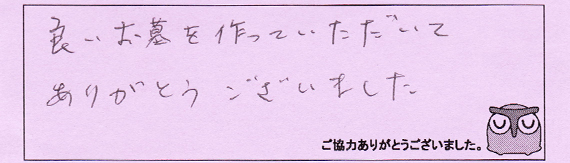 良いお墓を作っていただいて
ありがとうございました
ご協力ありがとうございました。